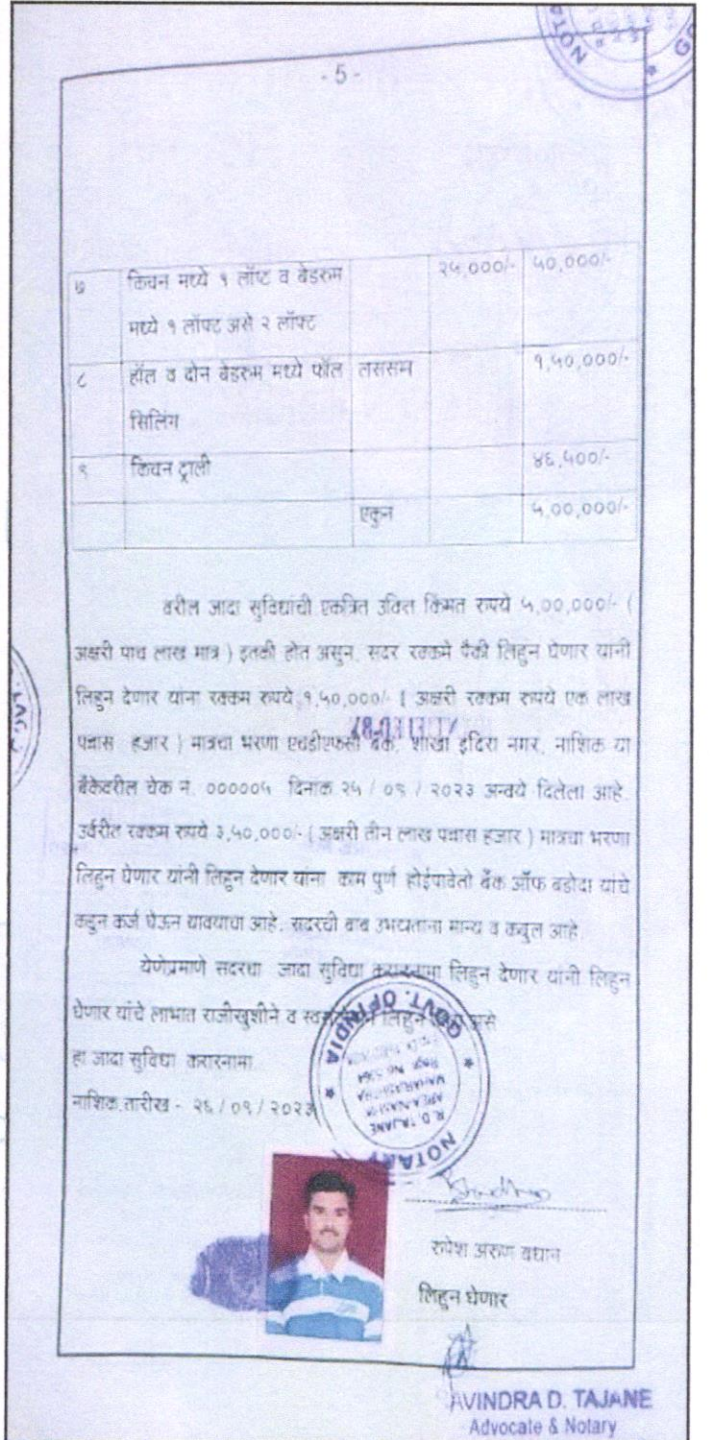 - 5 -
७ किचन मध्ये १ लॉफ्ट व बेडरुम २५,००0/- ५०,०००/-
मध्ये १ लॉफ्ट असे २ लॉफ्ट
८ हॉल व दोन बेडरुम मध्ये फॉल लससम १,५०,०००/-
सिलिंग
९ किचन ट्राली ४६,५००/-
एकुन ५,००,०००/-
वरील जादा सुविधांची एकत्रित उक्ति किंमत रुपये ५,००,०००/- (
अक्षरी पाच लाख मात्र ) इतकी होत असुन, सदर रक्कमे पैकी लिहुन घेणार यांनी
लिहुन देणार यांना रक्कम रुपये १,५०,०००/- ( अक्षरी रक्कम रुपये एक लाख
पन्नास हजार ) मात्रचा भरणा एचडीएफसी बँक, शाखा इंदिरा नगर, नाशिक या
बँकेवरील चेक नं. ००0००५ दिनांक २५ / ०९ / २०२३ अन्वये दिलेला आहे.
उर्वरीत रक्कम रुपये ३,५०,०००/- ( अक्षरी तीन लाख पन्नास हजार ) मात्रचा भरणा
लिहुन घेणार यांनी लिहुन देणार यांना काम पुर्ण होईपावेतो बँक ऑफ बडोदा यांचे
कडुन कर्ज घेऊन द्यावयाचा आहे. सदरची बाब उभयतांना मान्य व कबुल आहे.
येणेप्रमाणे सदरचा जादा सुविधा करारनामा लिहुन देणार यांनी लिहुन
घेणार यांचे लाभात राजीखुशीने व लिहुन असे
हा जादा सुविधा करारनामा.
नाशिक.तारीख - २६ / ०९ / २०२३
NOTARY
R. D. TAJANE
MAHARASHTRA
GOVT. OF INDIA
रुपेश अरुण बधान
लिहुन घेणार
RAVINDRA D. TAJANE
Advocate & Notary